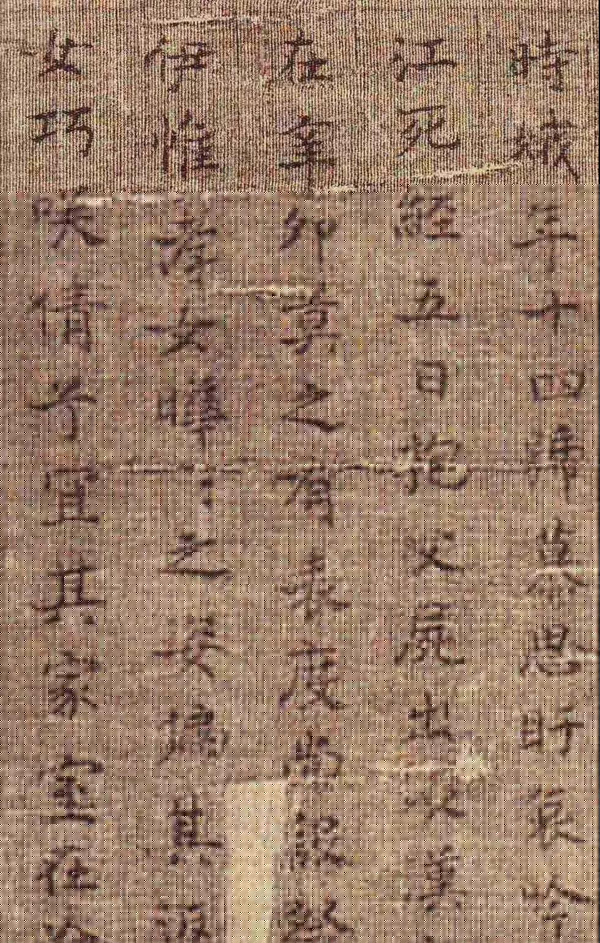 時娥年十四號慕思盱哀吟
江死經五日抱父屍出以漢
在辛卯莫之有表度尚設祭
伊惟孝女曄〻之姿偏其返
女巧咲倩兮宜其家室在洽